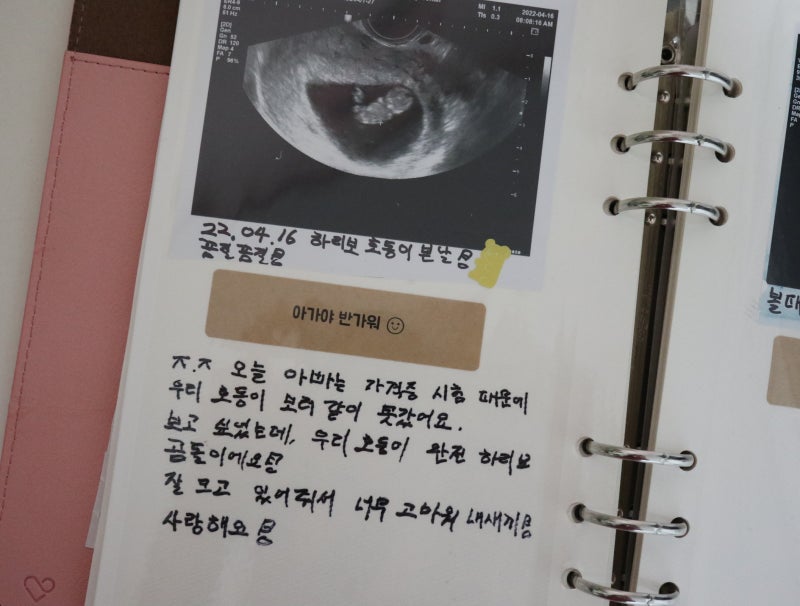 8.0 cm
61 Hz
[2D]
Gen
Gn 52
DR 120
Map 4
FA 7
P 96%
MI 1.1
TIs 0.3
2022-04-16
08:08:16 AM
22.04.16 하리보 호동이 본 날
꿈질꿈질
아가야 반가워
ㅈ.ㅈ 오늘 아빠는 자격증 시험 때문에
우리 호동이 보러 같이 못갔어요.
보고 싶었는데, 우리 호동이 완전 하리보
곰돌이에요
잘 크고 있어줘서 너무 고마워 내새끼
사랑해요
볼때